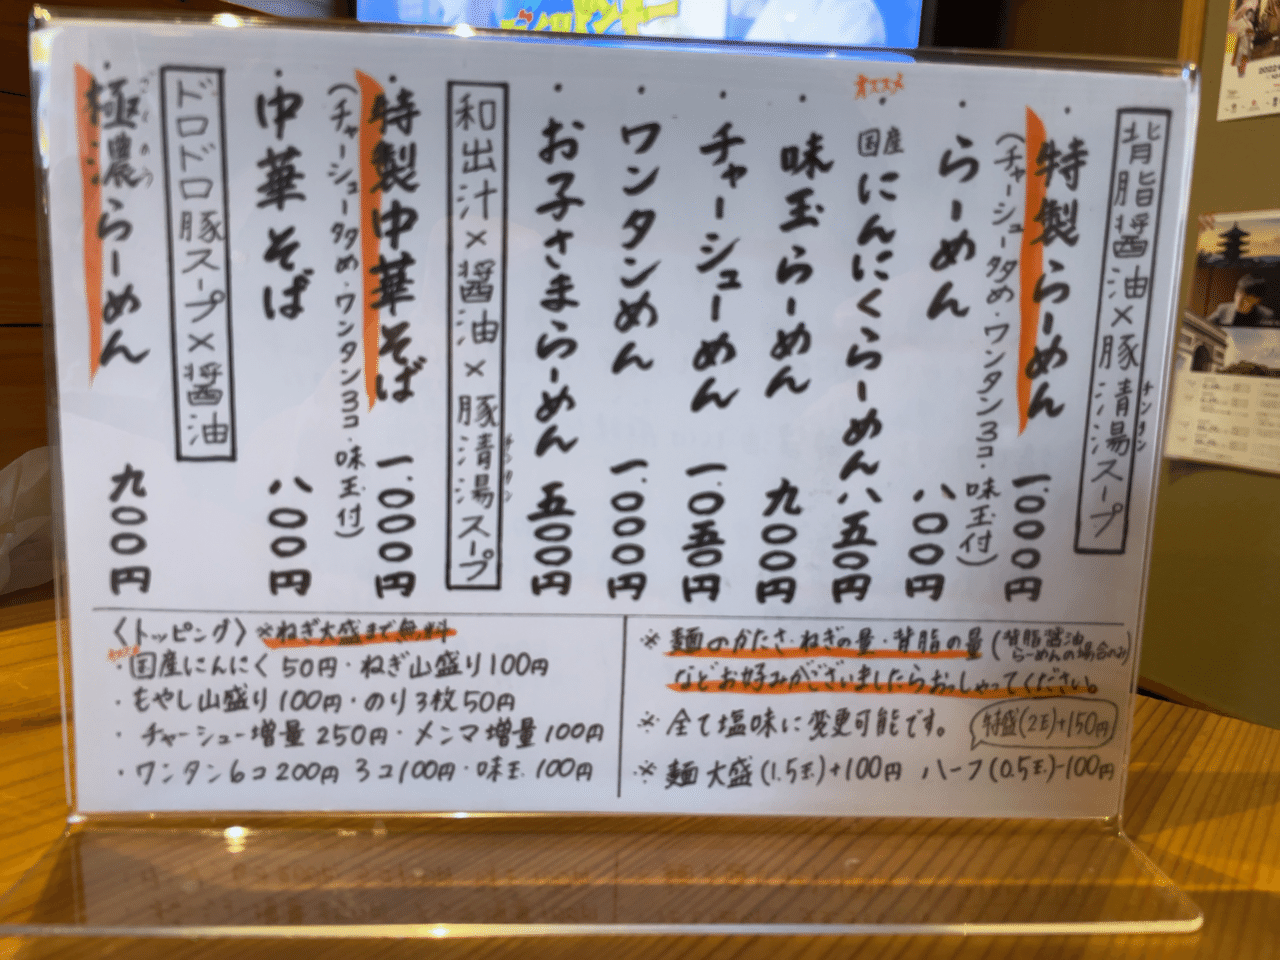 背脂醤油×豚清湯スープ
チンタン
・特製らーめん 一、〇〇〇円
(チャーシュー2タメ・ワンタン3コ・味玉付)
・らーめん 八〇〇円
オススメ
・国産にんにくらーめん 八五〇円
・味玉らーめん 九〇〇円
・チャーシューめん 一、〇五〇円
・ワンタンめん 一、〇〇〇円
・お子さまらーめん 五〇〇円
和出汁×醤油×豚清湯スープ
チンタン
・特製中華そば 一、〇〇〇円
(チャーシュー2タメ・ワンタン3コ・味玉付)
・中華そば 八〇〇円
ドロドロ豚スープ×醤油
・極濃らーめん 九〇〇円
ごくのう
〈トッピング〉※ねぎ大盛まで無料
・国産にんにく 50円・ねぎ山盛り100円
・もやし山盛り100円・のり3枚50円
・チャーシュー増量250円・メンマ増量100円
・ワンタン6コ200円 3コ100円・味玉100円
※麺のかたさ・ねぎの量・背脂の量(背脂醤油らーめんの場合のみ)
などお好みがございましたらおっしゃってください。
※全て塩味に変更可能です。
特盛(2玉)+150円
※麺大盛(1.5玉)+100円 ハーフ(0.5玉)-100円